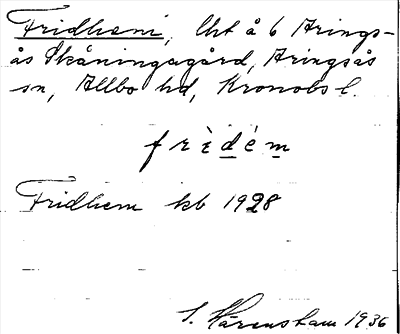 Fridhem, lht å 6 Arings-
ås Skåningagård, Aringsås
sn, Allbo hd, Kronobs l.
frìdém
Fridhem kb 1928
S. Härensham 1936